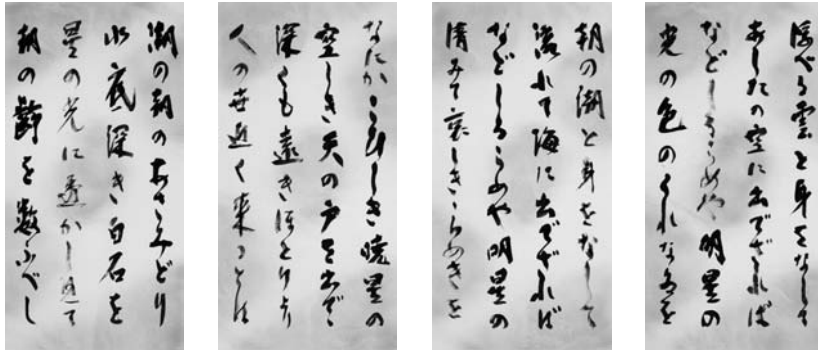 浮べる雲と身をなして
あしたの空に出でざれば
などしるらめや明星の
光の色のくれなゐを
朝の潮と身をなして
流れて海に出でざれば
などしるらめや明星の
清みて哀しきゝらめきを
なにかこひしき暁星の
空しき天の戸を出でゝ
深くも遠きほとりより
人の世近く来るとは
潮の朝のあさみどり
水底深き白石を
星の光に透かし見て
朝の齢を数ふべし